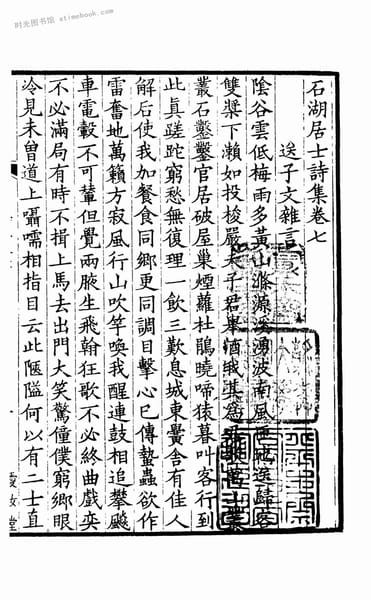 时光图书馆 - stimebook.com
石湖居士詩集卷七
送子文雜言
陰谷雲低梅雨多黃山滌源溪湧波南風
雙槳下瀨如投梭嚴夫子君
叢石鑿鑿官居破屋巢煙蘿杜鵑曉啼猿暮叫客行到
此真蹉跎窮愁無復理一飲三歎息城東黌舍有佳人
解后使我加餐食同鄉更同調目擊心已傳蟄蟲欲作
雷奮地萬籟方寂風行山吹竽喚我醒連鼓相追攀飈
車電轂不可輦但覺兩腋生飛翰狂歌不必終曲戲奕
不必滿局有時不揖上馬去出門大笑驚僮僕窮鄉眼
冷見未曾道上囁嚅相指目云此陋隘何以有二士直